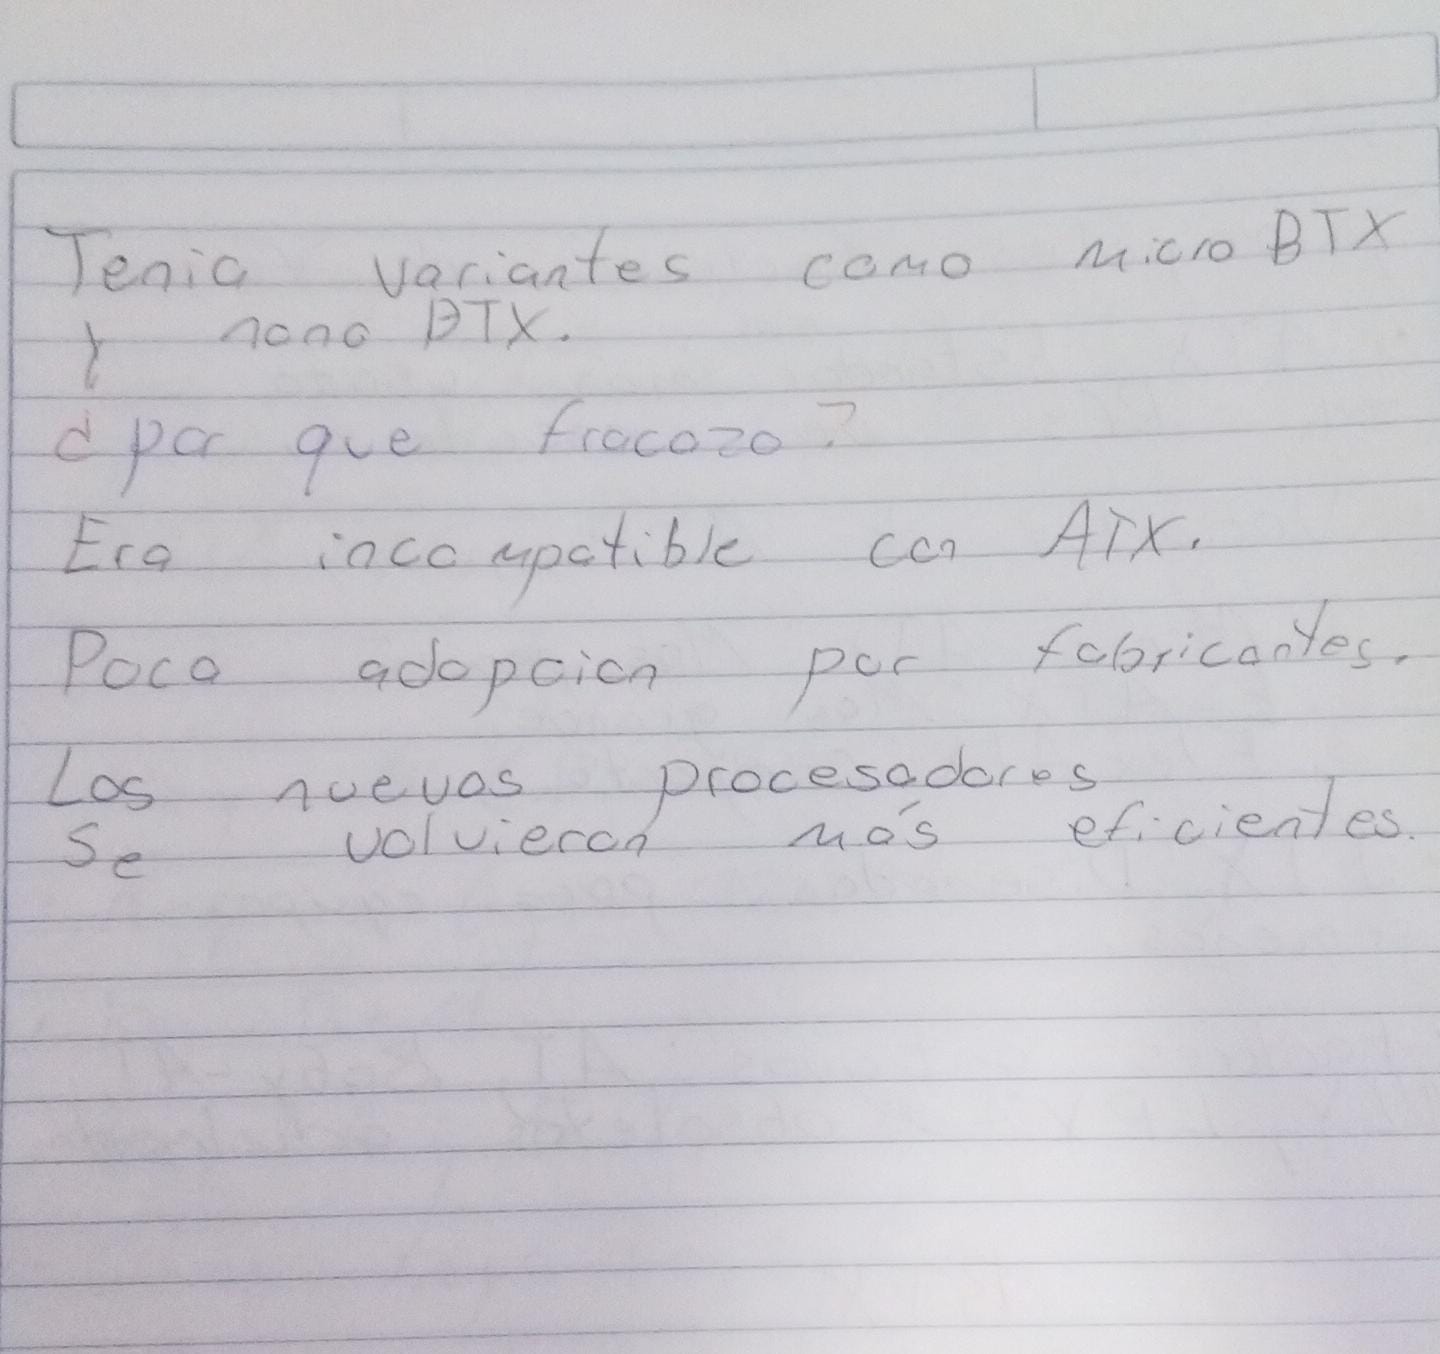 Tenia variantes como micro BTX
y nano BTX.
¿por que fracazo?
Era incompatible con ATX.
Poca adopcion por fabricantes.
Los nuevos procesadores
se volvieron más eficientes.